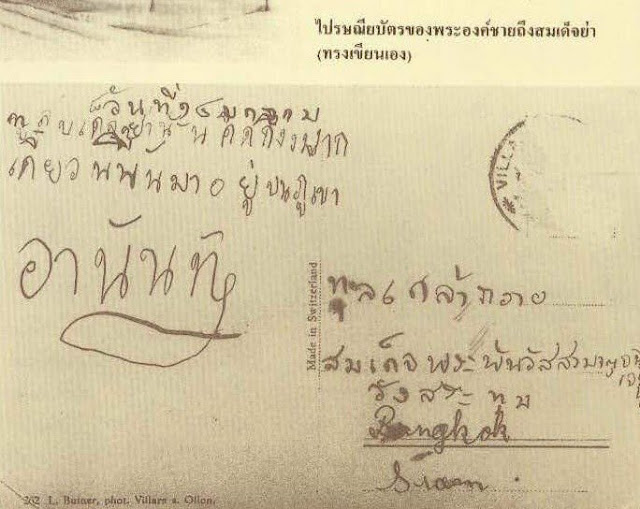 ไปรษณียบัตรของพระองค์ชายถึงสมเด็จย่า
(ทรงเขียนเอง)
วันที่ ๘ มกราคม
ทูลสมเด็จย่า นันคิดถึงมาก
เดี๋ยวนี้นันมาอยู่บนภูเขา
อานันท
Made in Switzerland
ทูลเกล้าถวาย
สมเด็จพระพันวัสสา
วังสระทุม
Bangkok
Siam.
VILLA
262 L. Butner, phot. Villars s. Ollon.